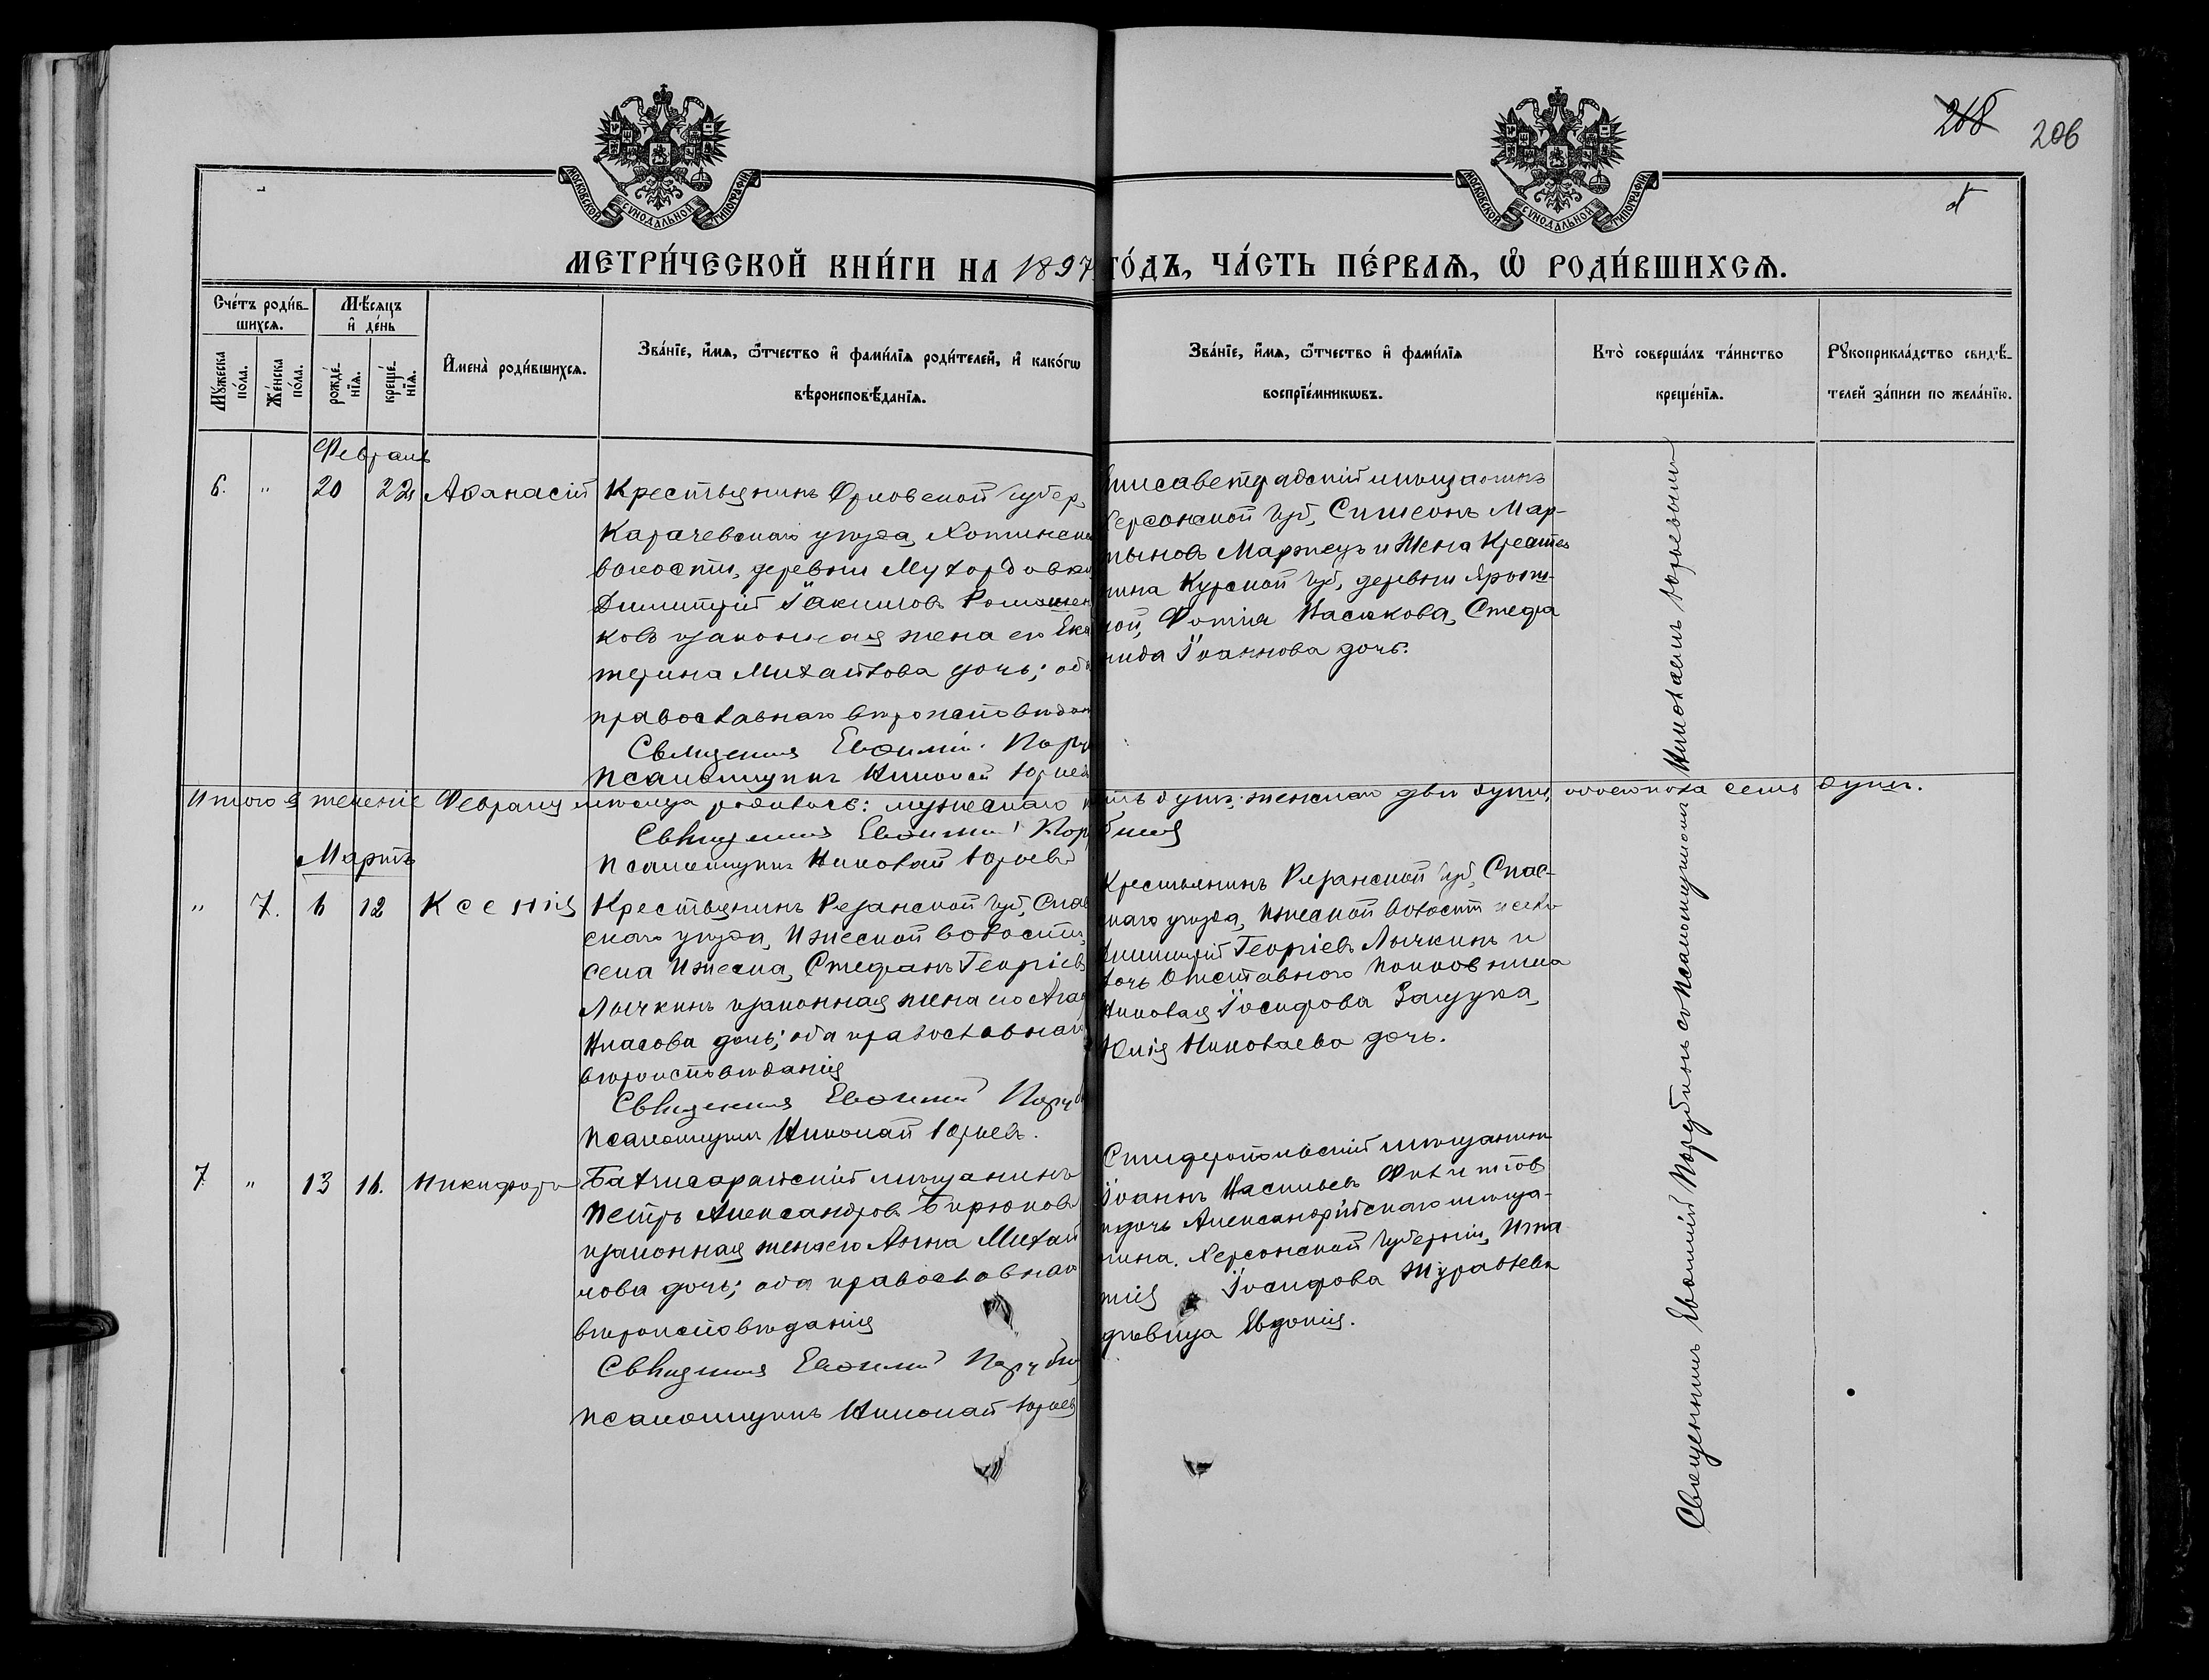 268 206
МОСКОВСКОЙ СѴНОДАЛЬНОЙ ТИПОГРАФІИ
МОСКОВСКОЙ СѴНОДАЛЬНОЙ ТИПОГРАФІИ
МЕТРИ́ЧЕСКОЙ КНИ́ГИ НА 1897 ГО́ДЪ, ЧА́СТЬ ПЕ́РВАѦ, Ѡ҆ РОДИ́ВШИХСѦ.
Сче́тъ роди́в-
шихсѧ.
Мꙋ́жеска по́ла.
Же́нска по́ла.
Мѣ́сѧцъ
и҆ де́нь
рожде́-
нїѧ.
креще́-
нїѧ.
И҆мена̀ роди́вшихсѧ.
Зва́нїе, и҆́мѧ, ѻ҆́тчество и҆ фами́лїѧ роди́телей, и҆ како́гѡ
вѣроисповѣ́данїѧ.
Зва́нїе, и҆́мѧ, ѻ҆́тчество и҆ фами́лїѧ
воспрїе́мникѡвъ.
Кто̀ соверша́лъ та́инство
креще́нїѧ.
Рꙋкоприкла́дство свидѣ́-
телей за́писи по жела́нїю.
Февраль
6. " 20 22 Аѳанасій
Крестьянинъ Орловской Губер.
Карачевскаго уѣзда, Хотинской
волости, деревни
Димитрій Іакимовъ
ковъ и законная жена его Ека
терина Михайлова дочь; оба
православнаго вѣроисповѣдан
Священникъ Евѳимій
Псаломщикъ Николай Юрьев
Елисаветградскій мѣщанинъ
Херсонской Губ., Симеонъ Мар-
тыновъ и жена Крестья
нина Курской Губ., деревни
Фотія Стефа
нида Іоаннова дочь.
Итого въ теченіе Февраля мѣсяца родилось: мужескаго пять душъ, женскаго двѣ души, обоего пола семь душъ.
Священникъ Евѳимій Порубинъ
Псаломщикъ Николай Юрьевъ
Мартъ
" 7. 6 12 Ксенія
Крестьянинъ Рязанской Губ., Спас
скаго уѣзда, Ижеской волости,
села Ижеска, Стефанъ Георгіевъ
Лычкинъ и законная жена его Ага
Власова дочь; оба православнаго
вѣроисповѣданія
Священникъ Евѳимій Поруб
Псаломщикъ Николай Юрьевъ.
Крестьянинъ Рязанской Губ., Спас-
скаго уѣзда, Ижеской волости
Димитрій Георгіевъ Лычкинъ и
дочь Отставного Полковника
Николая Іосифова
Юлія Николаева дочь.
7. " 13 16. Никифоръ
Бахчисарайскій мѣщанинъ
Петръ Александровъ Бирюковъ
и законная жена его Анна Михай
лова дочь; оба православнаго
вѣроисповѣданія
Священникъ Евѳимій Порубин
Псаломщикъ Николай Юрьевъ
Симферопольскій мѣщанинъ
Іоаннъ Васильевъ Филиповъ
и дочь Александрійскаго мѣща-
нина, Херсонской Губерніи, Игна
тія Іосифова Журавлева
дѣвица Евдокія.
Священникъ Евѳимій Порубинъ со Псаломщикомъ Николаемъ Юрьевымъ